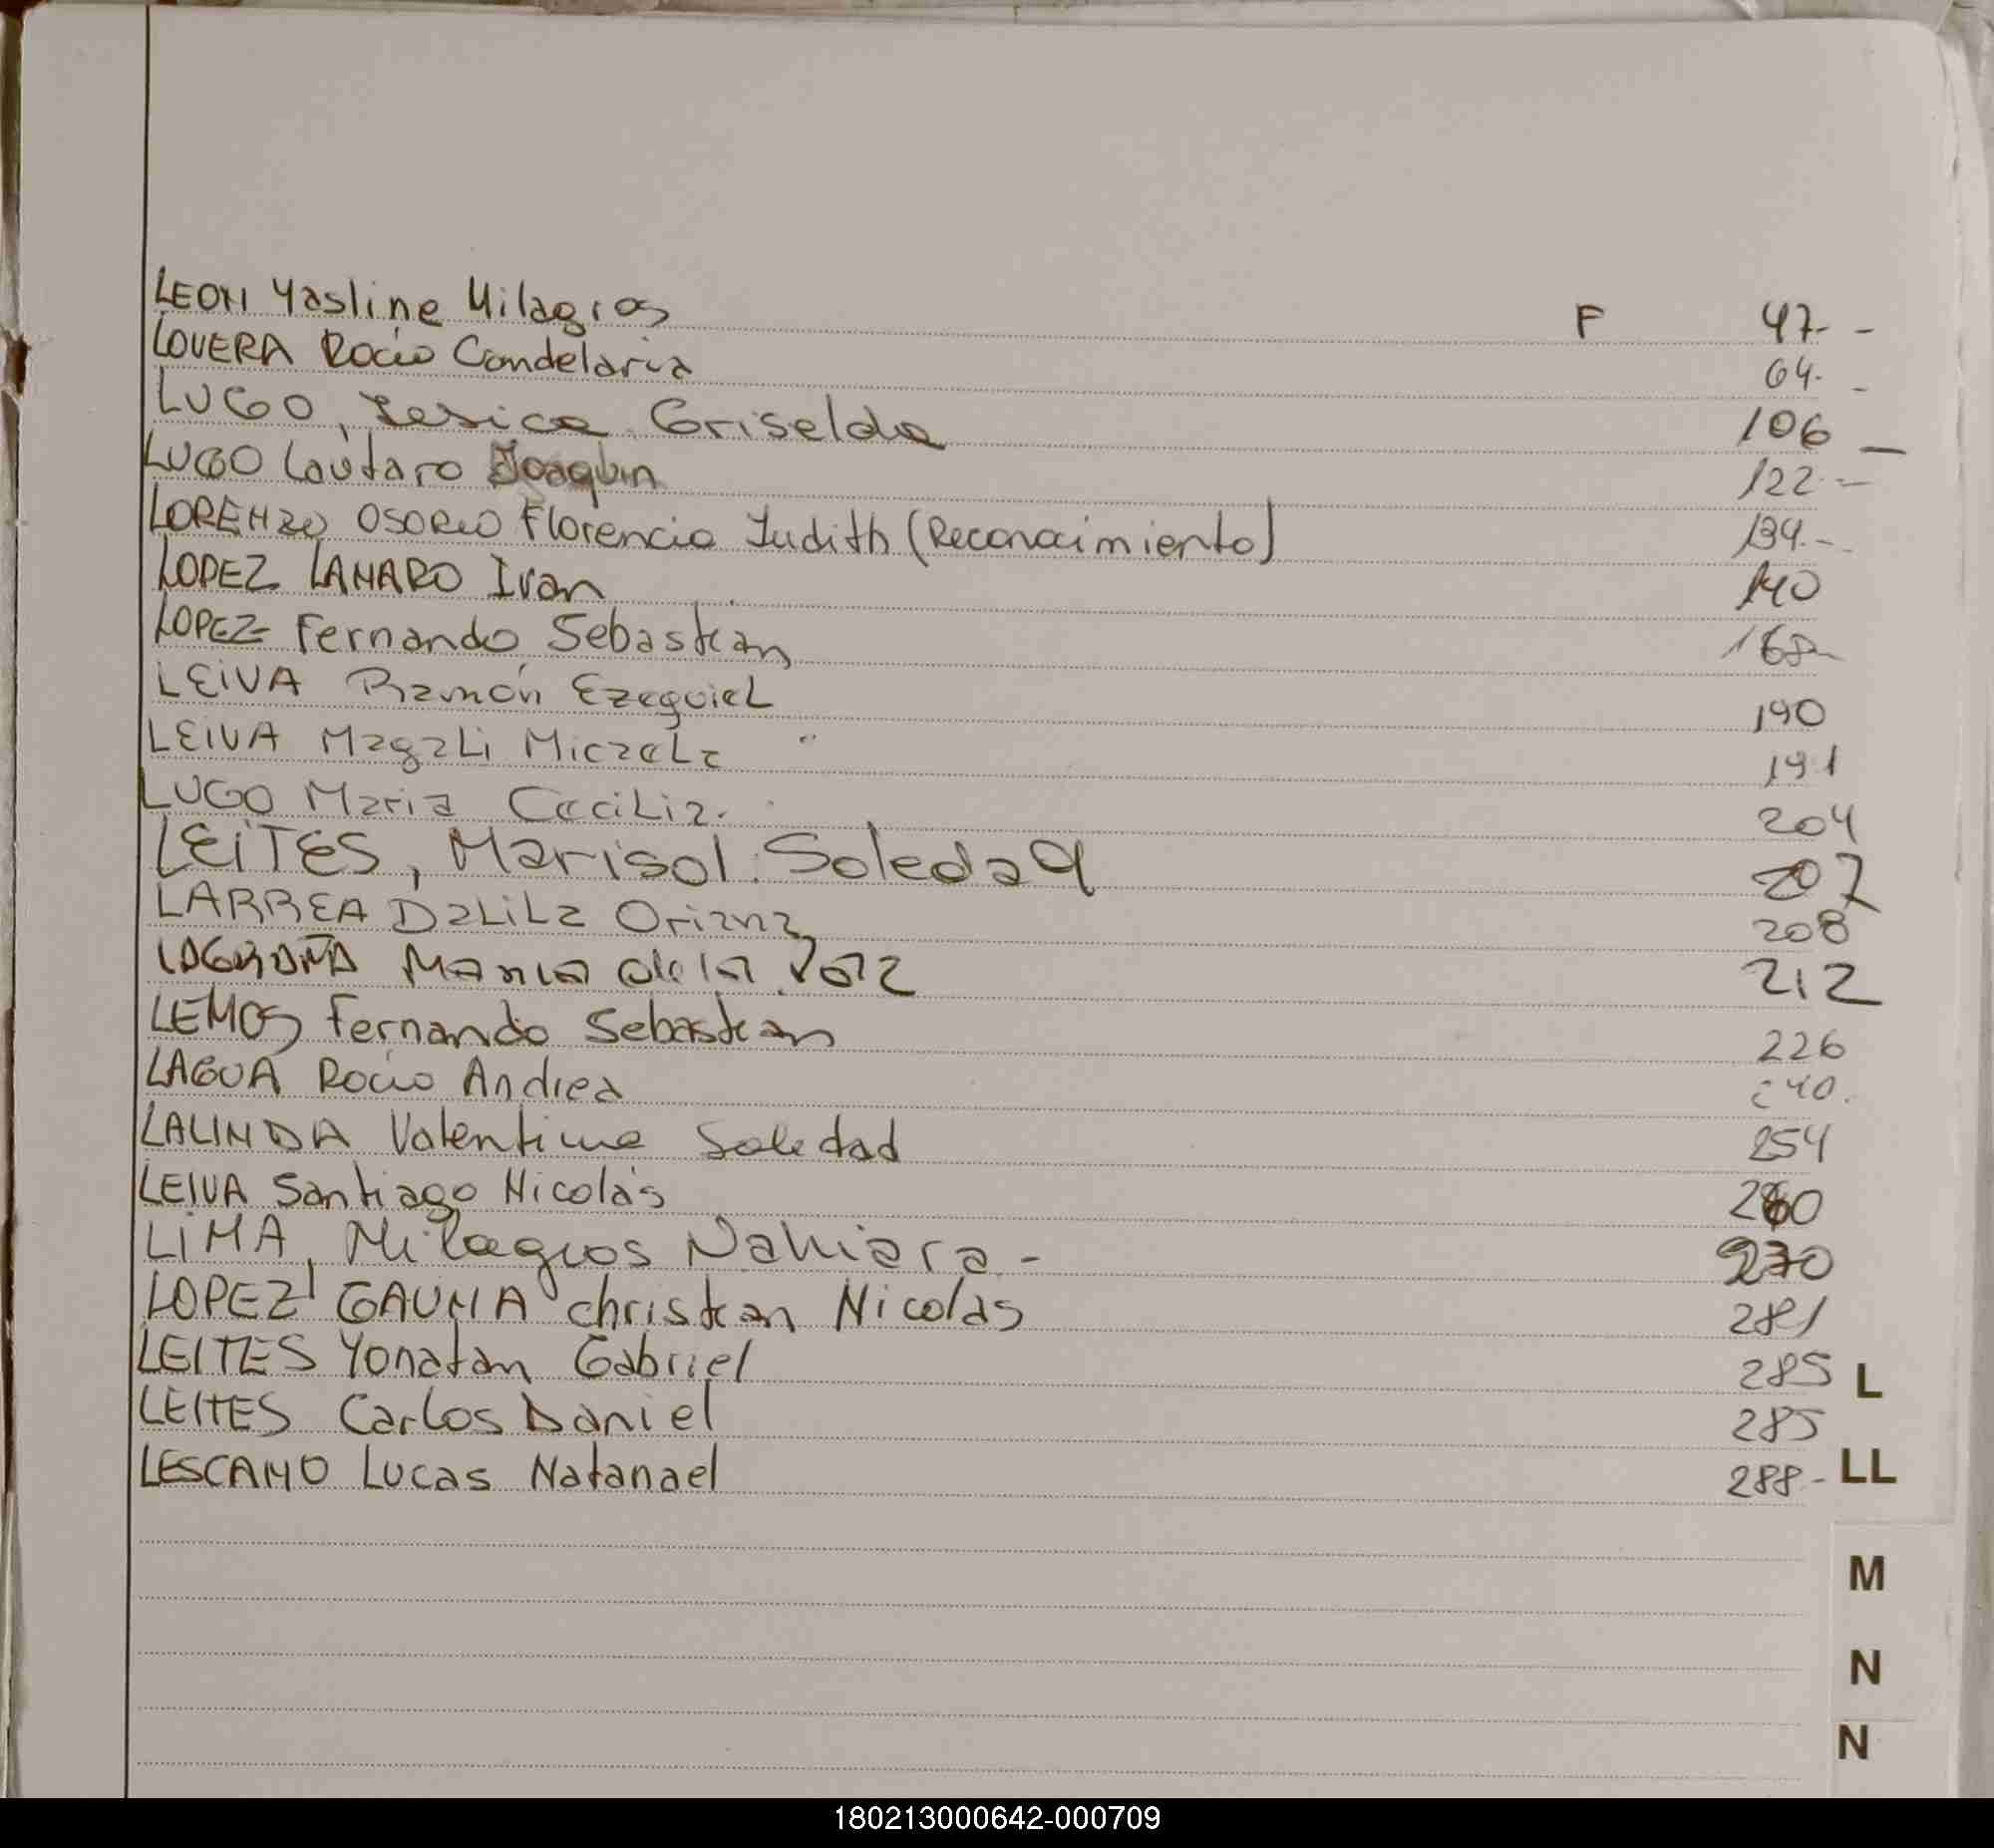 LEON Yasline Milagros F 47.-
LOVERA Rocio Candelaria 64.-
LUGO, Yesica Griselda 106 -
LUGO Lautaro Joaquin 122.-
LORENZO OSORIO Florencia Judith (Reconocimiento) 134.-
LOPEZ LAMARO Ivan 140
LOPEZ Fernando Sebastian 168-
LEIVA Ramón Ezequiel 190
LEIVA Magali Micaela " 191
LUGO Maria Cecilia. 204
LEITES, Marisol Soledad 207
LARREA Dalila Oriana 208
LAGRAÑA Maria de la Paz 212
LEMOS Fernando Sebastian 226
LAGUA Rocio Andrea 240.
LALINDA Valentina Soledad 254
LEIVA Santiago Nicolás 260
LIMA, Milagros Nahiara - 270
LOPEZ GAUNA Christian Nicolás 281
LEITES Yonatan Gabriel 285
L
LEITES Carlos Daniel 285
LESCANO Lucas Natanael 288-
LL
M
N
N
180213000642-000709